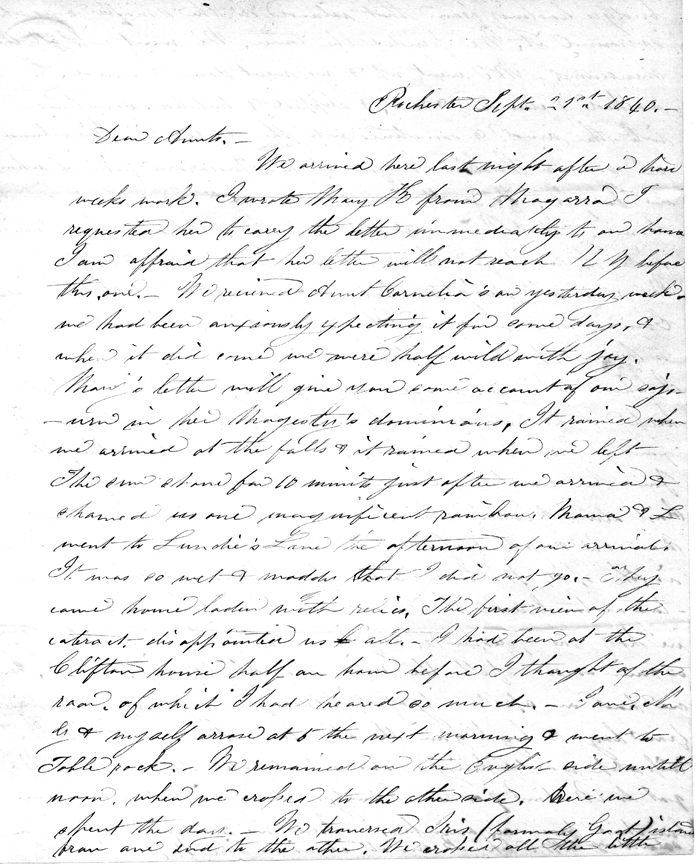 Rochester Sept. 21st 1840.-
Dear Aunts,-
We arrived here last night after a hard
weeks work. I wrote Mary H from Niagarra I
requested her to carry the letter immediately to our house
I am affraid that her letter will not reach N Y before
this one.- We recieved Aunt Cornelia's on yesterday week.
we had been anxiously expecting it for some days, &
when it did come we were half wild with joy.
Mary's letter will give you some account of our sojo-
-urn in her Magesty's dominions, It rained when
we arrived at the falls & it rained when we left
The sun shone for 10 minits just after we arrived &
showed us one magnificent rainbow. Mama & L
went to Lundie's Lane the afternoon of our arrival.
It was so wet & muddy that I did not go.- They
came home laden with relics. The first view of the
cateract disappointed us all.- I had been at the
Clifton house half an hour before I thought of the
roar, of which I had heared so much.- Jane,
& myself arrose at 5 the next morning & went to
Table rock.- We remained on the English side untill
noon, when we crossed to the other side. Here we
spent the day.- We traversed Iris (formaly Goat) island
from one end to the other. We crossed all the little